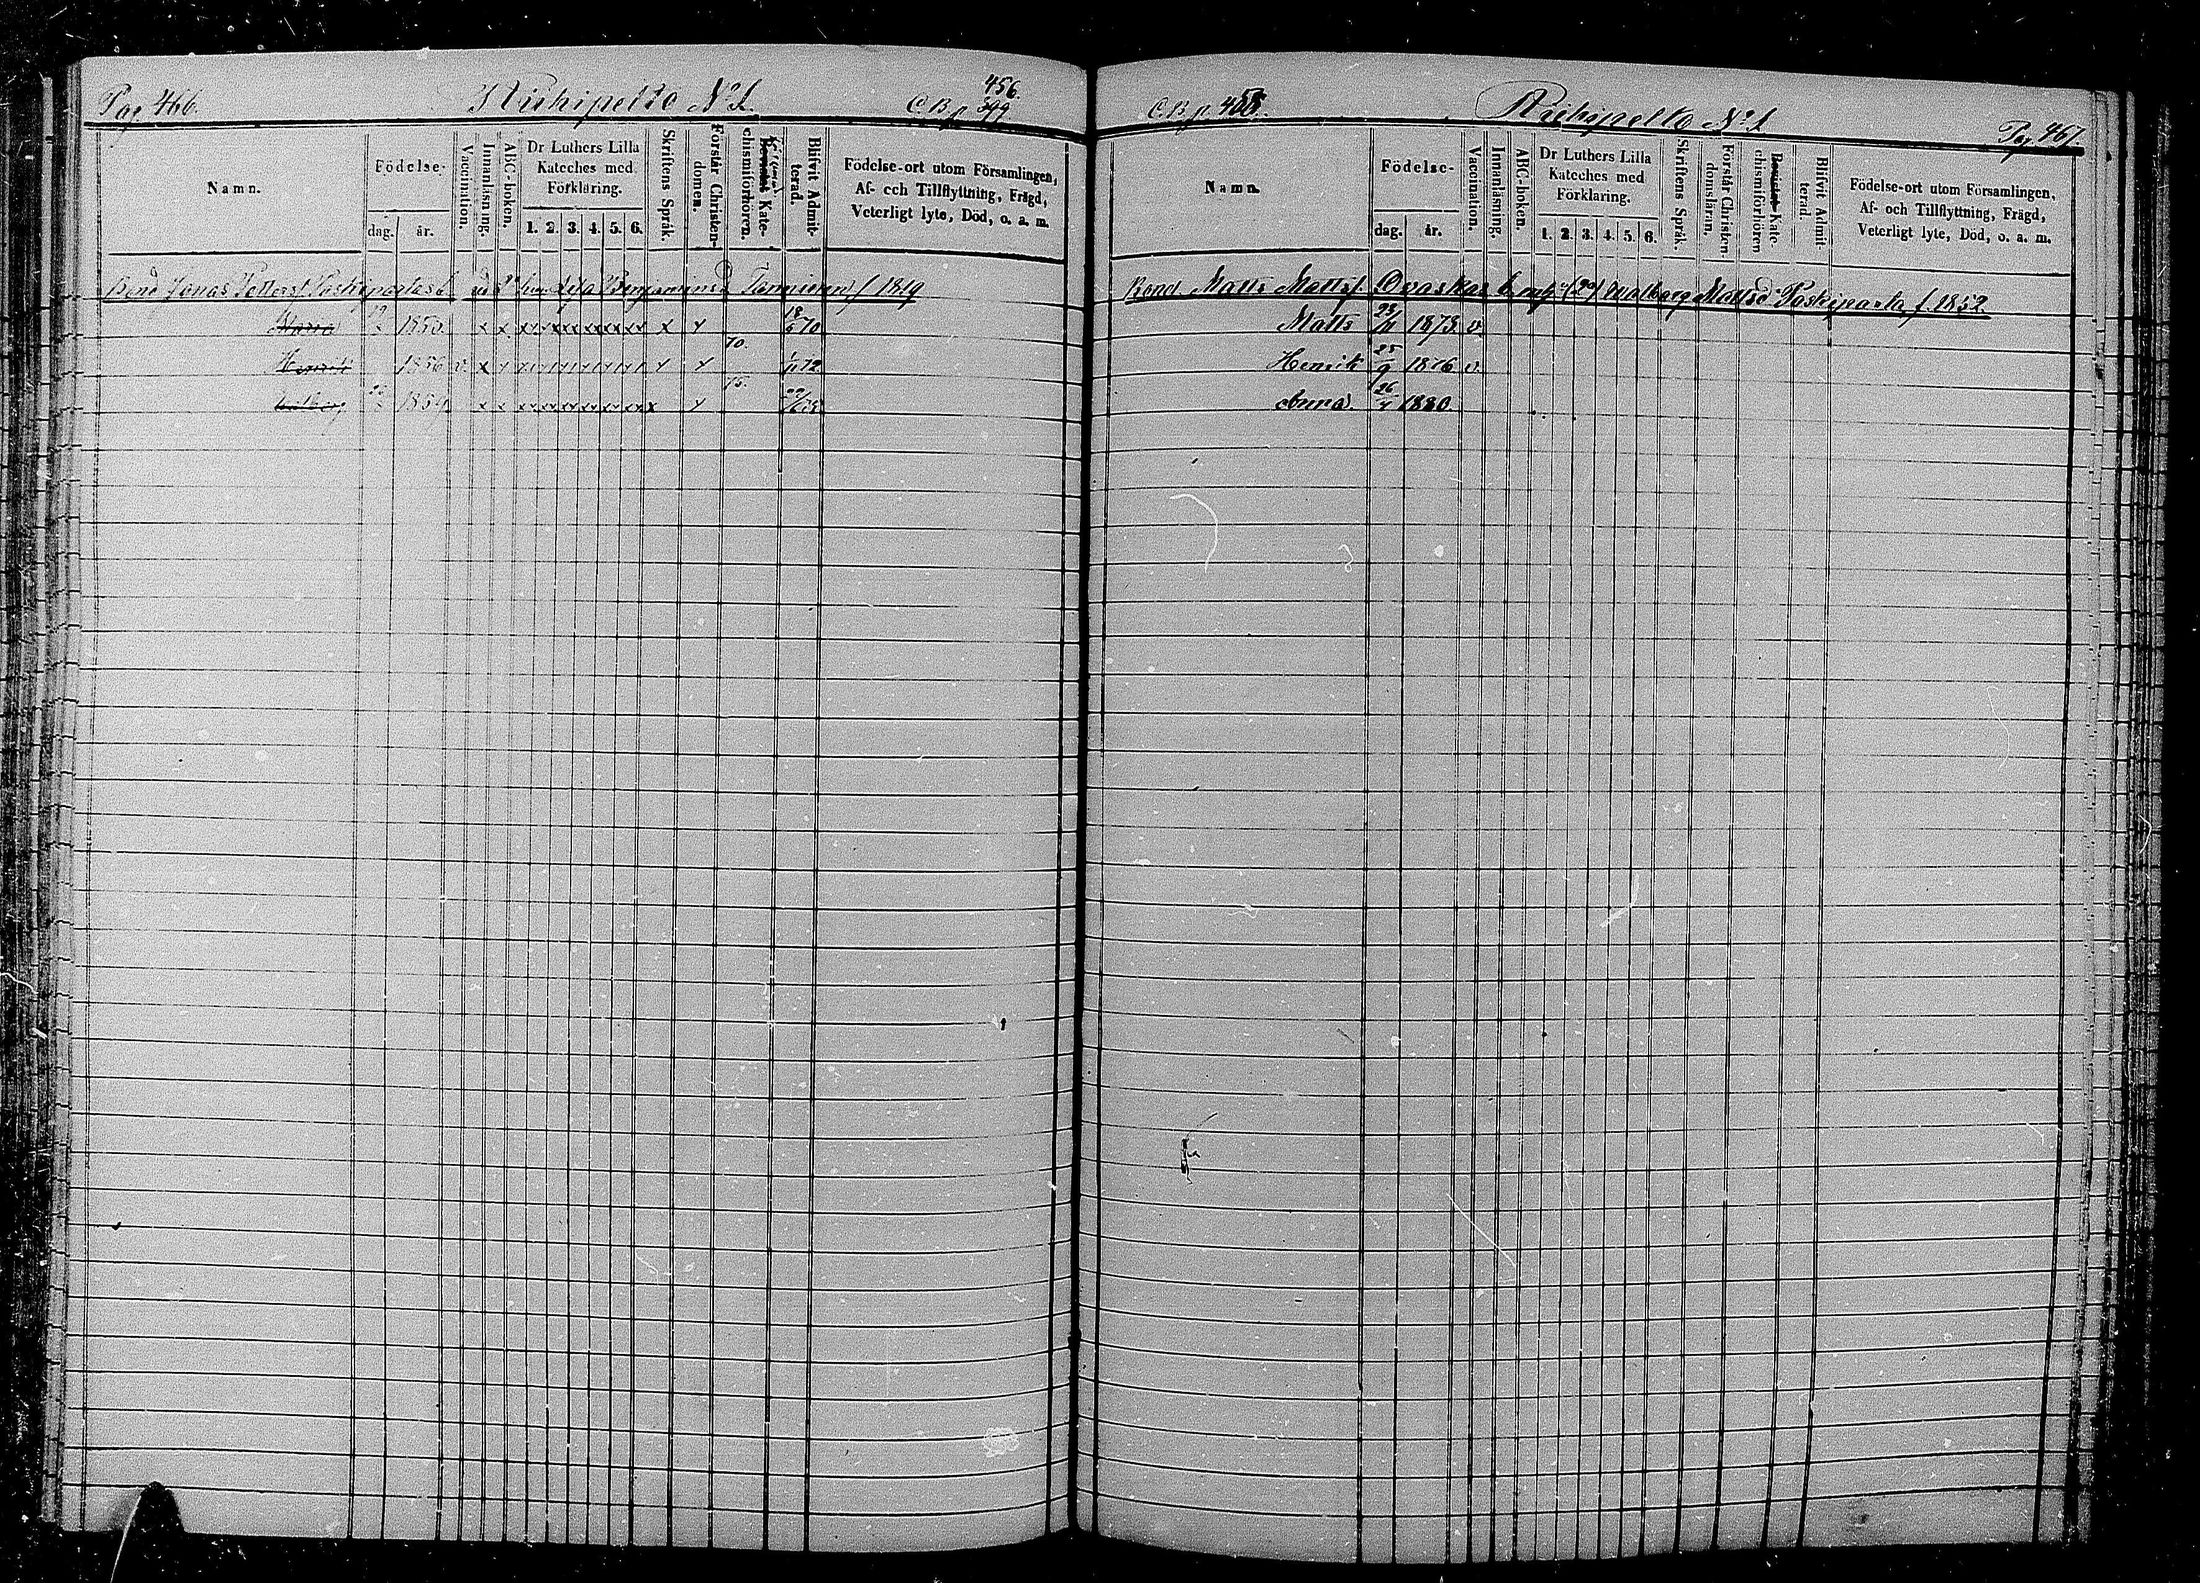 Pag 466.
Riihipelto No 1.
456.
C.B.p. 399
Namn.
Födelse-
dag.
år.
Vaccination.
Innanläsning.
ABC-boken.
Dr Luthers Lilla
Kateches med
Förklaring.
1. 2. 3. 4. 5. 6.
Skriftens Språk.
Förstår Christen-
domen.
Bevistat Kate-
chismiförhören.
Blifvit Admit-
terad.
Födelse-ort utom Församlingen,
Af- och Tillflyttning, Frägd,
Veterligt lyte, Död, o. a. m.
Bond Jonas Petterss Lisa Benjaminsd f 1819
Maria 1850. x x xx xx xx xx xx xx x x 18/6 70
Henrik 1856 v. x x 70. 72
Walborg 1859 x x xx xx xx xx xx xx x x 75.
C.B.p. 458.
Riihipelto No 1.
Pag. 467.
Namn.
Födelse-
dag.
år.
Vaccination.
Innanläsning.
ABC-boken.
Dr Luthers Lilla
Kateches med
Förklaring.
1. 2. 3. 4. 5. 6.
Skriftens Språk.
Förstår Christen-
domsläran.
Bevistat Kate-
chismiförhören
Blifvit Admit-
terad.
Födelse-ort utom Församlingen,
Af- och Tillflyttning, Frägd,
Veterligt lyte, Död, o. a. m.
Bond Matts Mattss Ovaskas Walborg Mattsd Paskiparta f. 1852.
Matts 23/11 1873 v.
Henrik 25/9 1876 v.
Anna. 26/4 1880.